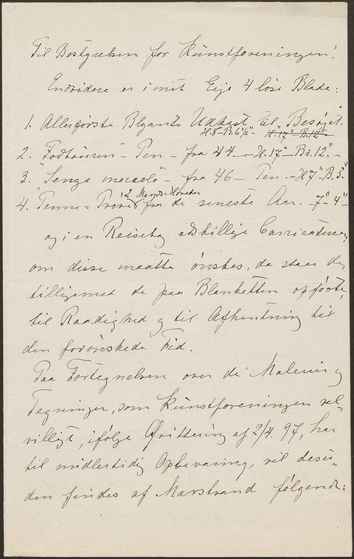 Til Bestyrelsen for Kunstforeningen!
Endvidere er i mit Eje 4 løse Blade:
1. Allerførste Blyants Udkast til "Besøget.
H. 8" B. 6½" H. 17" B. 12"
2. " - Pen - fra 44 - H. 17" Br. 12". -
3. " - fra 46 - Pen. - H 7" B. 5"
4. Penne - fra de seneste Aar. - 7" 4" -
og i en Reisebog adskillige Carricaturer,
om disse maatte ønskes, da staar de
tilligemed de paa Blanketten opførte
til Raadighed og til Afhentning til
den forønskede Tid.
Paa Fortegnelsen over de Malerier og
Tegninger, som Kunstforeningen vel-
villigt, ifølge Qvittering af 2/4 97, har
til midlertidig Opbevaring, vil desu-
den findes af Marstrand følgende: